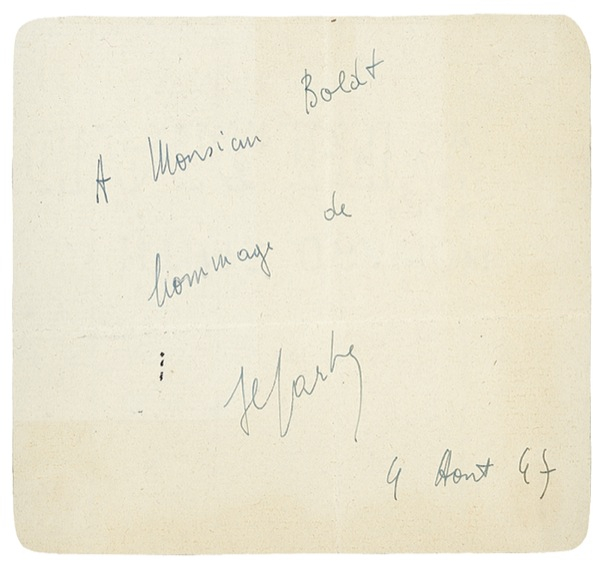 A Monsieur Boldt
hommage de
JPSartre
4 Aout 47